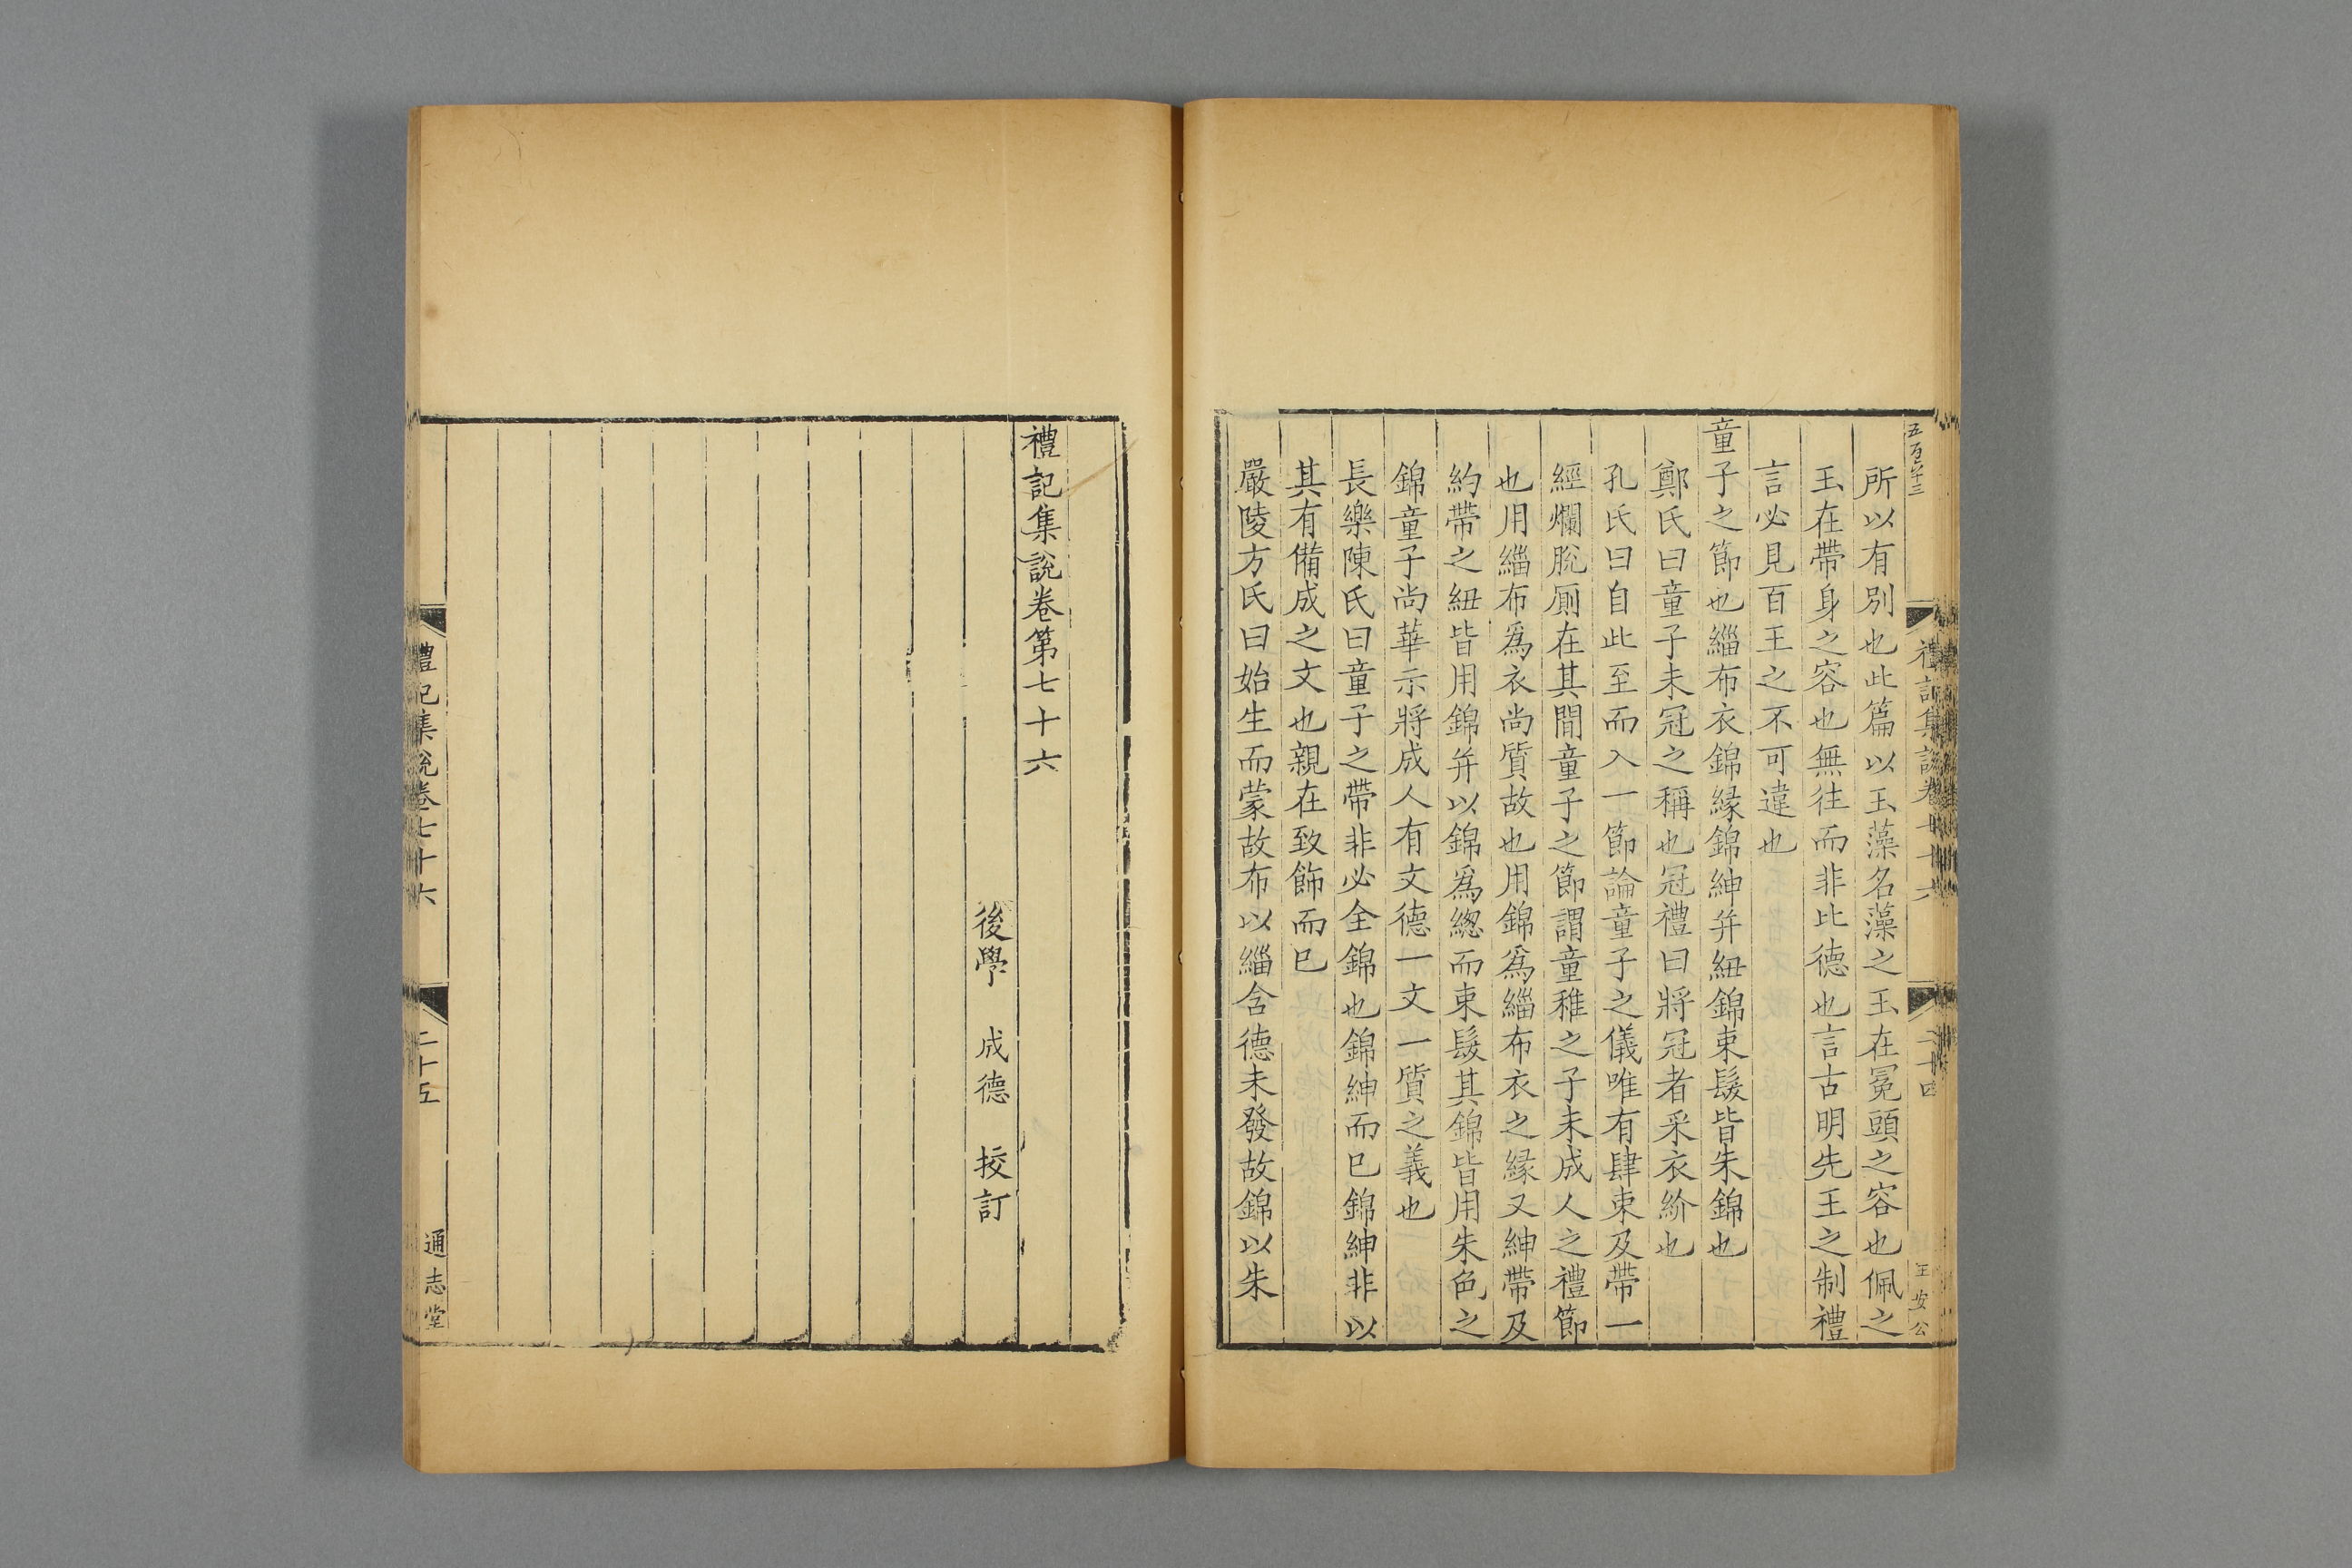 五百六十三
禮記集說卷七十六
二十四
王安公
所以有別也此篇以玉藻名藻之玉在冕頭之容也佩之
玉在帶身之容也無往而非比德也言古明先王之制禮
言必見百王之不可違也
童子之節也緇布衣錦緣錦紳并紐錦束髮皆朱錦也
鄭氏曰童子未冠之稱也冠禮曰將冠者采衣紒也
孔氏曰自此至而入一節論童子之儀唯有肆束及帶一
經爛脫厠在其間童子之節謂童稚之子未成人之禮節
也用緇布爲衣尚質故也用錦爲緇布衣之緣又紳帶及
約帶之紐皆用錦并以錦爲緫而束髮其錦皆用朱色之
錦童子尚華示將成人有文德一文一質之義也
長樂陳氏曰童子之帶非必全錦也錦紳而已錦紳非以
其有備成之文也親在致飾而已
嚴陵方氏曰始生而蒙故布以緇含德未發故錦以朱
禮記集說卷第七十六
後學 成德 挍訂
禮記集說卷七十六
二十五
通志堂